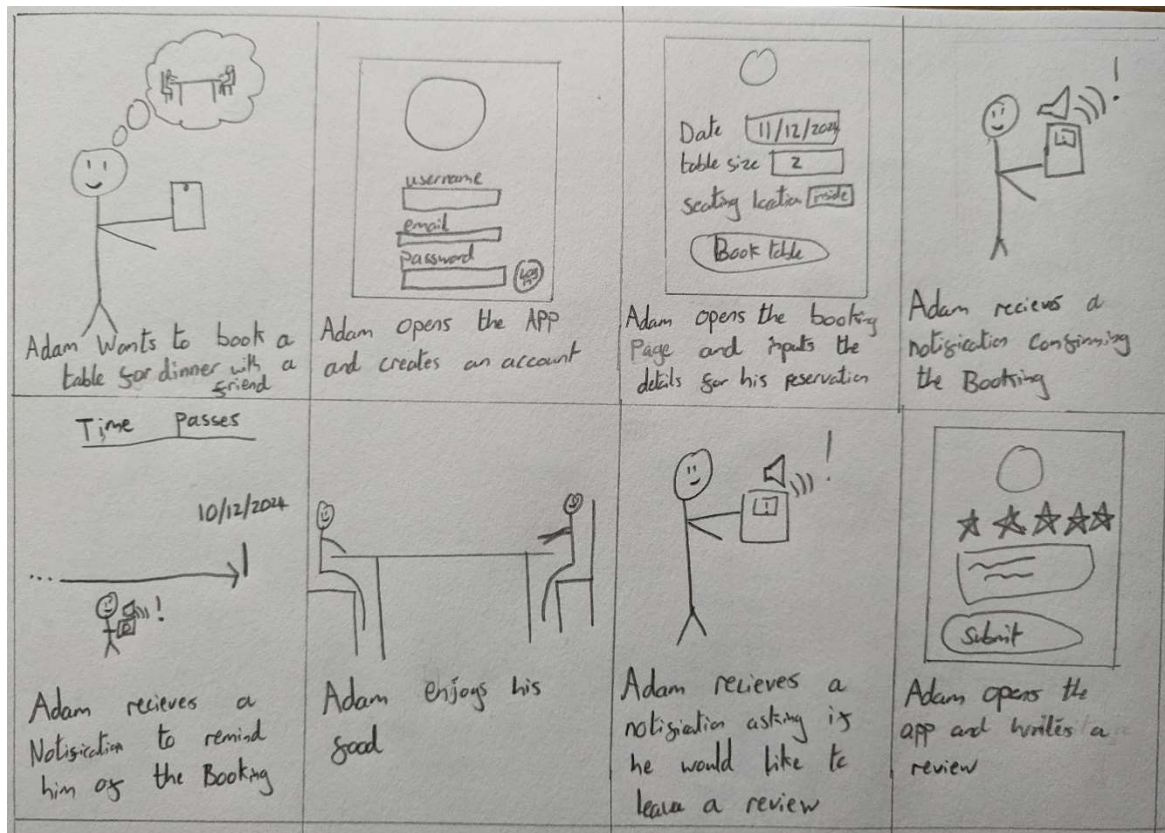 Adam Wants to book a
table for dinner with a
friend
username
email
password
Adam opens the APP
and creates an account
Date 11/12/2024
table size 2
seating location inside
Book table
Adam opens the booking
Page and inputs the
details for his reservation
!
Adam recieves a
notification confirming
the Booking
Time Passes
10/12/2024
...
!
Adam recieves a
Notification to remind
him of the Booking
Adam enjoys his
food
!
Adam recieves a
notification asking if
he would like to
leave a review
Submit
Adam opens the
app and writes a
review